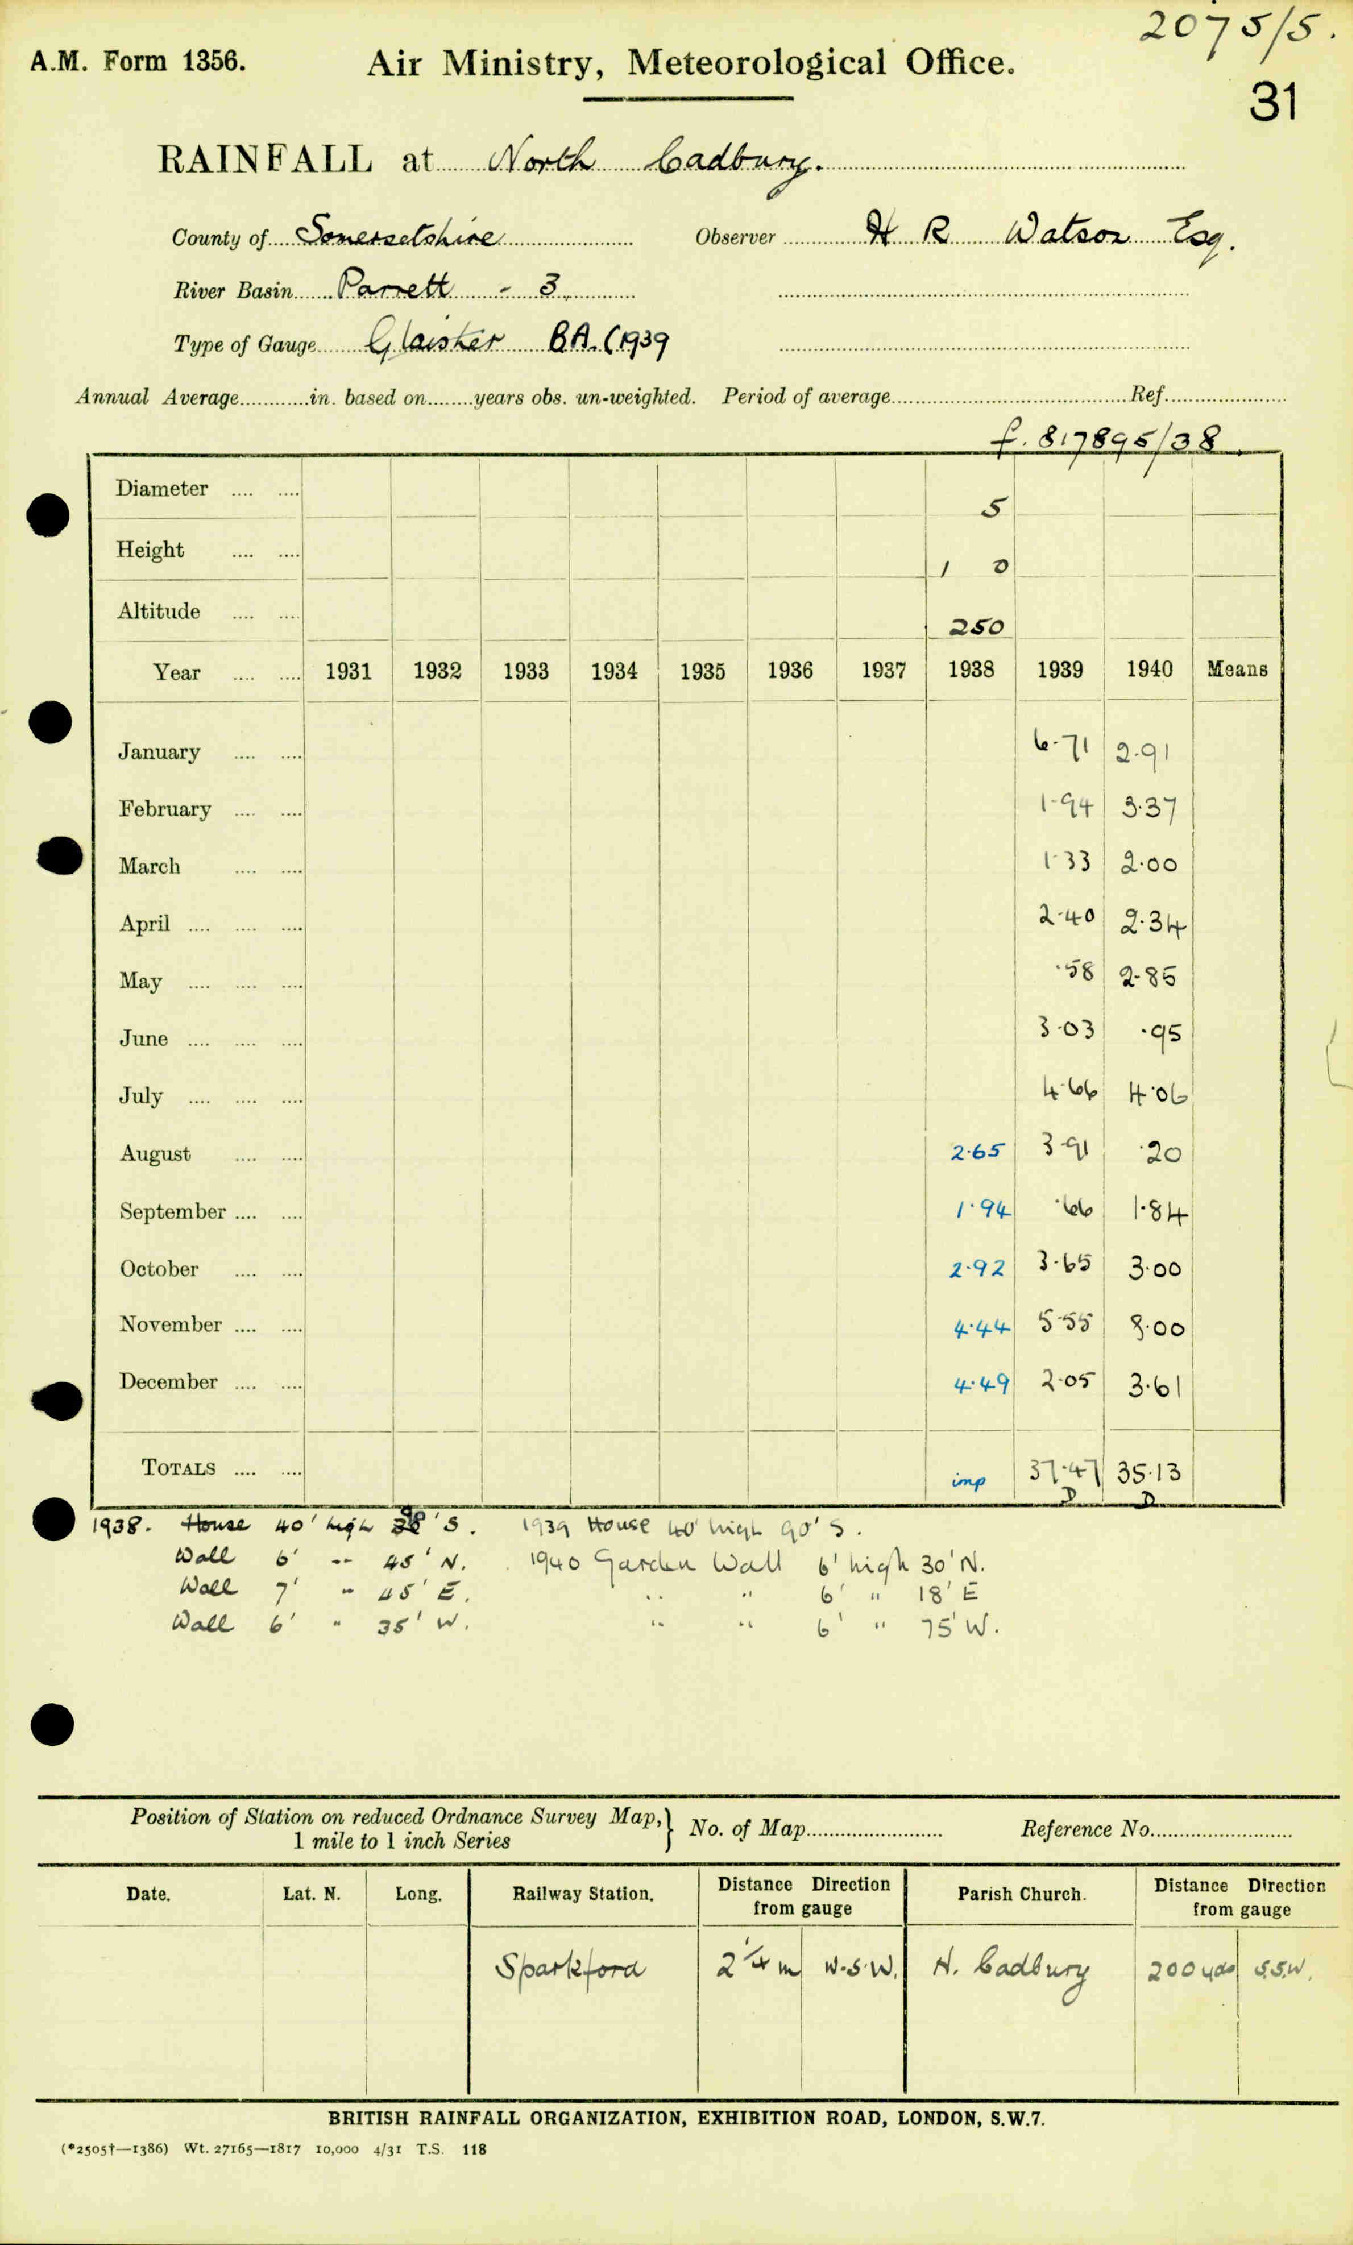 2075/5.
A.M. Form 1356. Air Ministry, Meteorological Office.
31
RAINFALL at North Cadbury.
County of Somersetshire Observer H R Watson Esq.
River Basin Parrett - 3.
Type of Gauge Glaisher BA. (1939
Annual Average............in. based on........years obs. un-weighted. Period of average........Ref........
f. 817895/38.
Diameter .... .... 5
Height .... .... 1 0
Altitude .... .... 250
Year .... .... 1931 1932 1933 1934 1935 1936 1937 1938 1939 1940 Means
January .... .... 6.71 2.91
February .... .... 1.94 3.37
March .... .... 1.33 2.00
April .... .... .... 2.40 2.34
May .... .... .... .58 2.85
June .... .... .... 3.03 .95
July .... .... .... 4.66 4.06
August .... .... 2.65 3.91 .20
September .... .... 1.94 .66 1.84
October .... .... 2.92 3.65 3.00
November .... .... 4.44 5.55 8.00
December .... .... 4.49 2.05 3.61
TOTALS .... .... imp 37.47 35.13
D D
1938. House 40' high 98' S. 1939 House 40' high 90' S.
Wall 6' -- 45' N. 1940 Garden Wall 6' high 30' N.
Wall 7' " 45' E. " " 6' " 18' E
Wall 6' " 35' W. " " 6' " 75' W.
Position of Station on reduced Ordnance Survey Map,} No. of Map........ Reference No........
1 mile to 1 inch Series
Date. Lat. N. Long. Railway Station. Distance Direction from gauge Parish Church. Distance Direction from gauge
Sparkford 2 1/4 m W.S.W. N. Cadbury 200 yds S.S.W.
BRITISH RAINFALL ORGANIZATION, EXHIBITION ROAD, LONDON, S.W.7.
(*2505†—1386) Wt. 27165—1817 10,000 4/31 T.S. 118